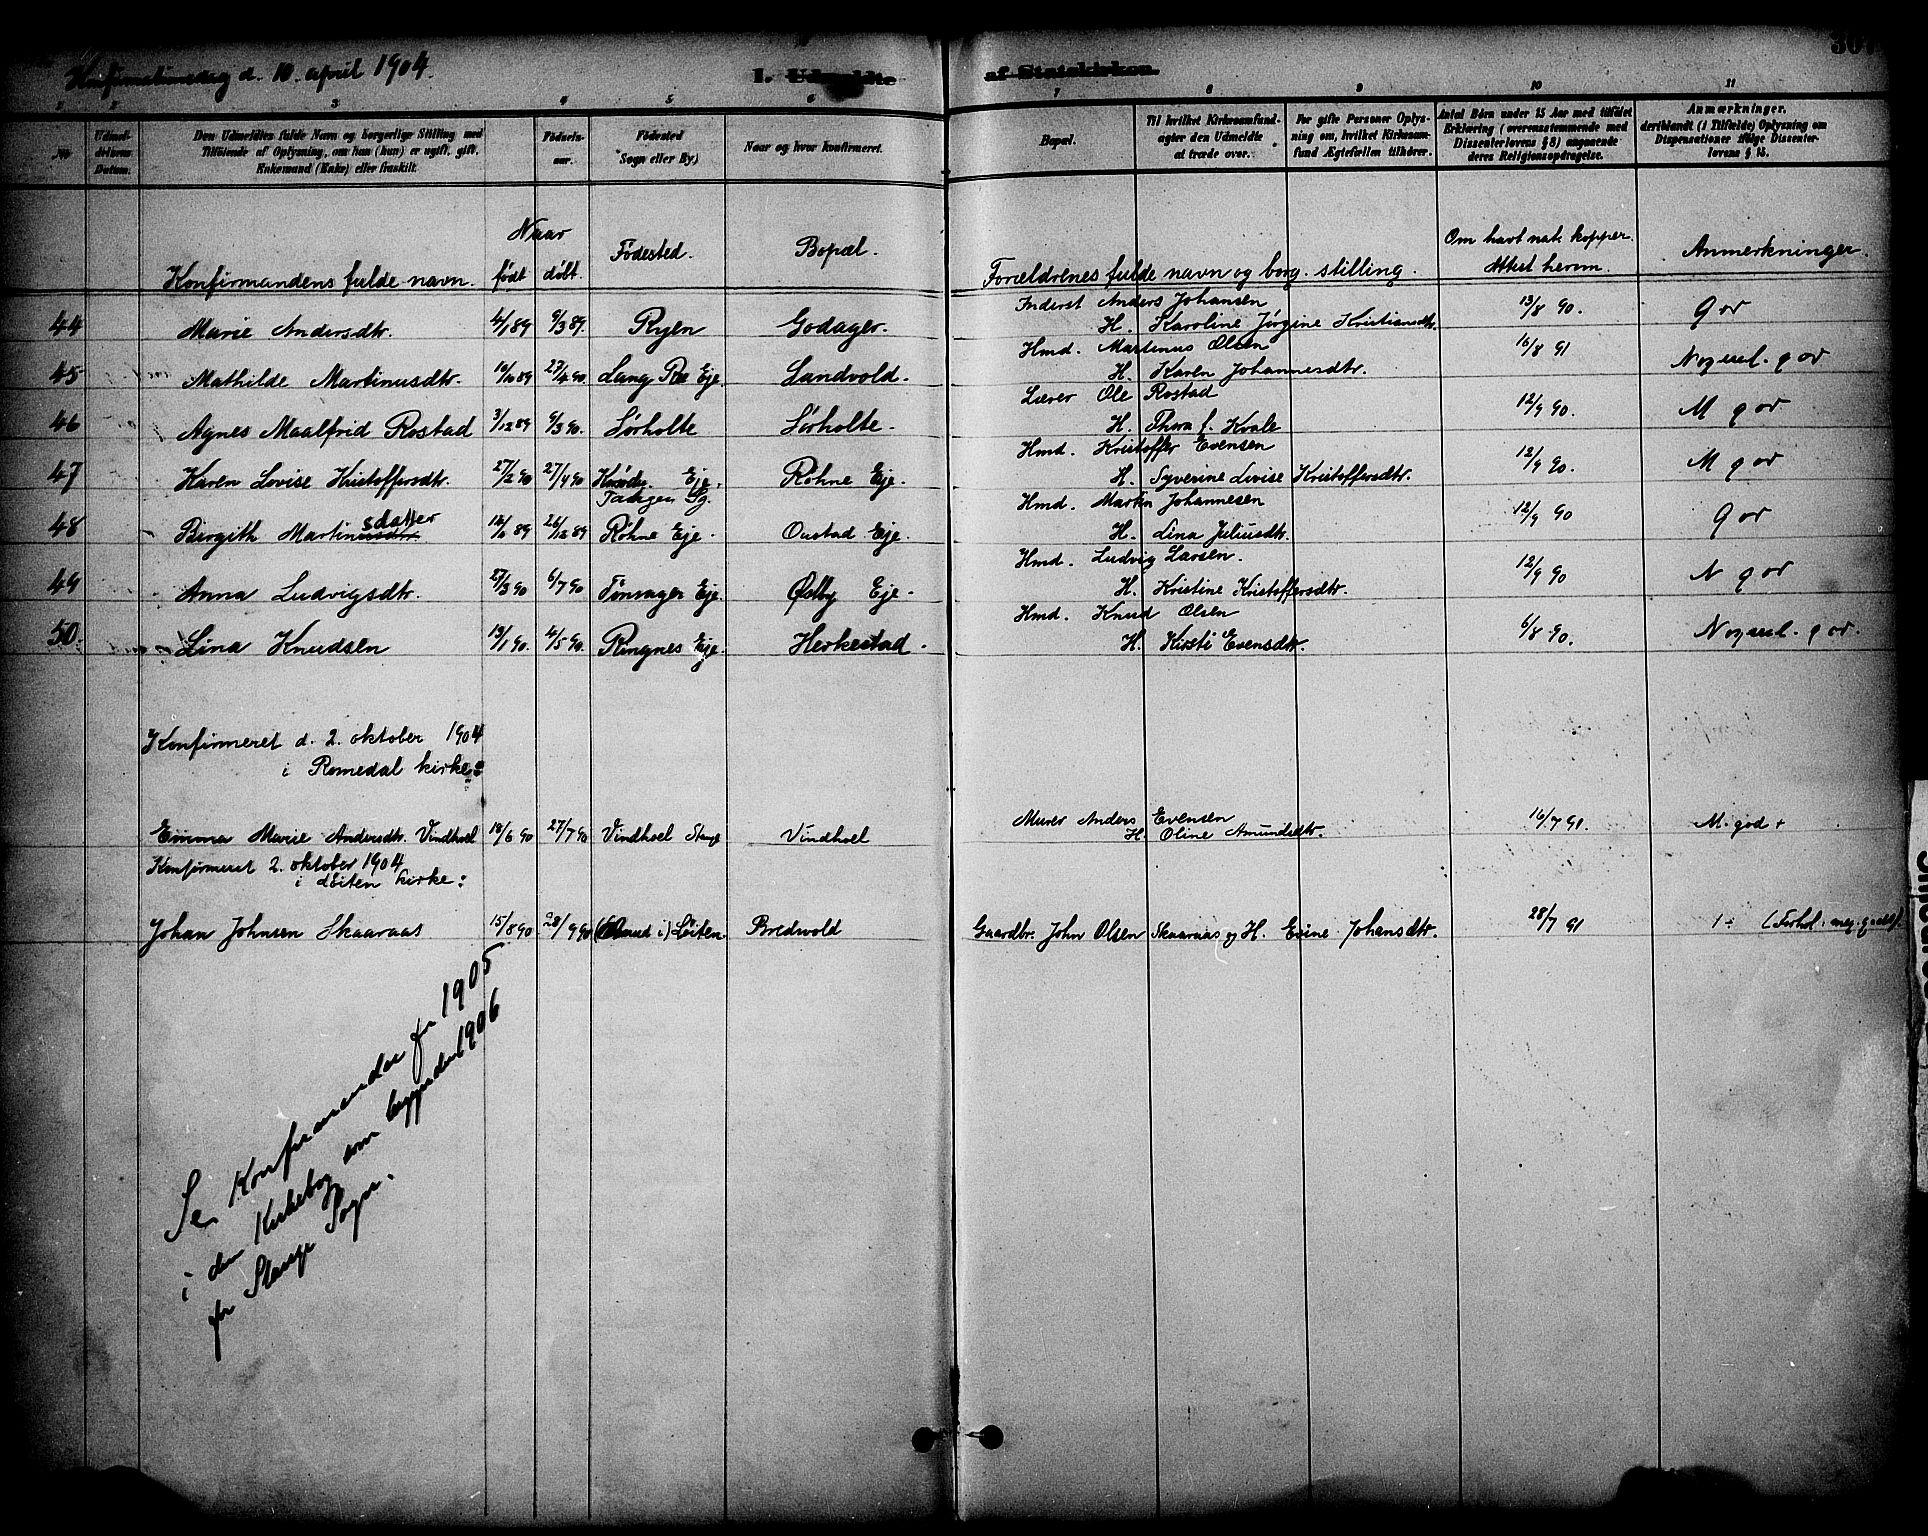 Konfirmationsdag d. 10. april 1904.
I. Udmeldte af Statskirken. 307
1 2 3 4 5 6 7 8 9 10 11
No
Udmel-
delsens
Datum.
Den Udmeldtes fulde Navn og borgerlige Stilling med
Tilföiende af Oplysning, om han (hun) er ugift, gift,
Enkemand (Enke) eller fraskilt.
Födsels-
aar.
Födested
(Sogn eller By).
Naar og hvor konfirmeret.
Bopæl.
Til hvilket Kirkesamfund
agter den Udmeldte
at træde over.
For gifte Personer Oplys-
ning om, hvilket Kirkesam-
fund Ægtefællen tilhører.
Antal Börn under 15 Aar med tilföiet
Erklæring (overensstemmende med
Dissenterlovens § 8) angaaende
deres Religionsopdragelse.
Anmærkninger,
deriblandt (i Tilfælde) Oplysning om
Dispensationer ifölge Dissenter-
lovens § 18.
Konfirmandens fulde navn.
Naar
født døbt.
Fødested.
Bopæl.
Forældrenes fulde navn og borg. stilling.
Om havt nat. kopper.
Attest herom.
Anmerkninger.
44 Marie Andersdtr. 4/1 89 9/3 89. Ryen Godager. Inderst Anders Johansen 13/8 90. g or
H. Karoline Jørgine Kristiansdtr.
45 Mathilde Martinusdtr. 16/10 89 27/4 90. Lang Re Eje. Sandvold. Hmd. Martinus Olsen 16/8 91 Noget ul. g or
H. Karen Johannesdtr.
46 Agnes Maalfrid Rostad 3/12 89 9/3 90. Sørholte Sørholte. Lærer Ole Rostad 12/9 90. M g or
H. Thora f. Kvale
47 Karen Lovise Kristoffersdtr. 27/2 90 27/4 90 Eje. Tangen Sg. Røhne Eje. Hmd. Kristoffer Evensen 12/9 90. M g or
H. Syverine Lovise Kristoffersdtr.
48 Birgith Martinsdatter 26/12 89 Røhne Eje. Oustad Eje. Hmd. Martin Johannesen 12/9 90 g or
H. Lina Juliusdtr.
49 Anna Ludvigsdtr. 27/3 90 6/7 90 Tønsager Eje. Østby Eje. Hmd. Ludvig Larsen. 12/9 90 N g or
H. Kristine Kristoffersdtr.
50. Lina Knudsen 19/1 90. 4/5 90. Ringnes Eje. Herkestad. Hmd. Knud Olsen 6/8 90. Noget ul. g or.
H. Kirsti Evensdtr.
Konfirmeret d. 2. oktober 1904
i Romedal kirke:
Emma Marie Andersdtr. Vindhoel 18/6 90 27/7 90 Vindhoel Stange Vindhoel Murer Anders Evensen 16/7 91. M. god +
H. Oline Amundsdtr.
Konfirmeret 2. oktober 1904
i Løiten kirke:
Johan Johnsen Skaaraas 15/8 90 28/9 90 i) Løiten. Bredvold Gaardbr. John Olsen Skaaraas og H. Eline Johansdtr. 28/7 91
Se Konfirmander for 1905
i den Kirkebog som begynder 1906
for Stange Sogn.